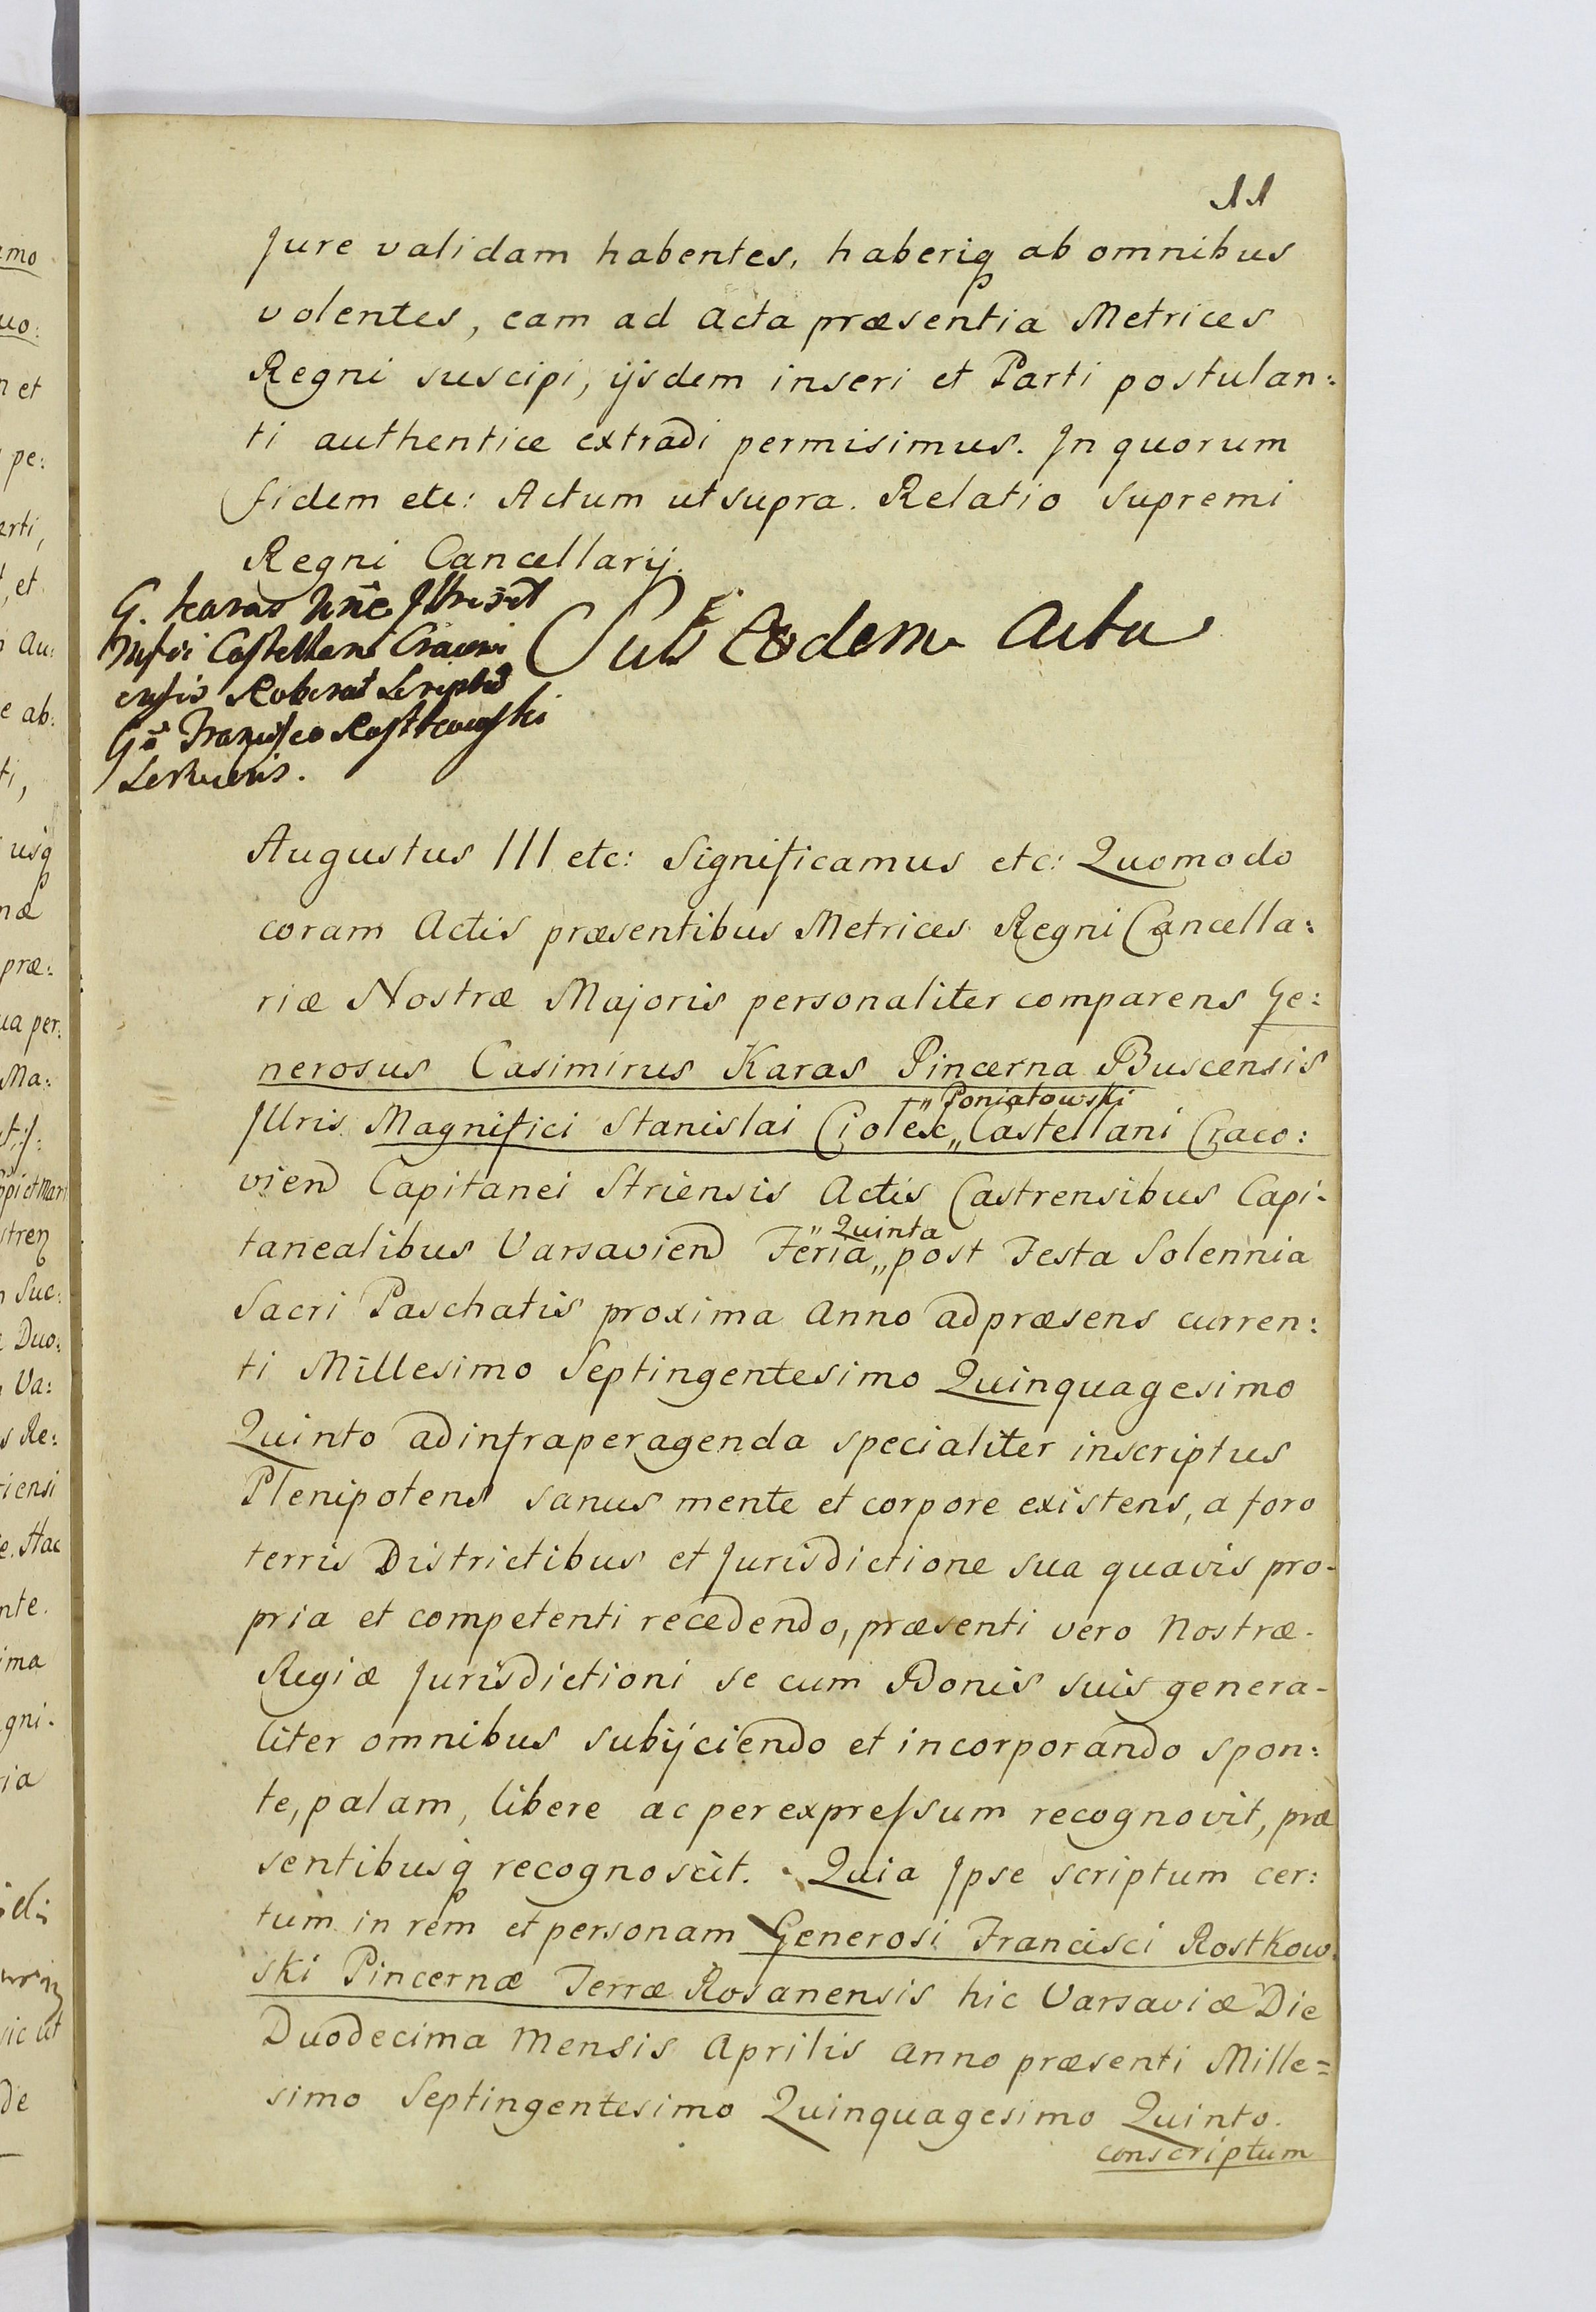 11
Jure validam habentes, haberiq ab omnibus
volentes, eam ad Acta præsentia Metrices
Regni suscipi, ijsdem inseri et Parti postulan:
ti authentice extradi permisimus. Jn quorum
fidem etc: Actum ut supra. Relatio Supremi
Regni Cancellarij.
G. Karas
Castellani
Roborat Scriptū
Francisco Rostkowski
Sub Eodem Actu
Augustus III etc: Significamus etc: Quomodo
coram Actis præsentibus Metrices Regni Cancella:
riæ Nostræ Majoris personaliter comparens Ge:
nerosus Casimirus Karas Pincerna Buscensis
" Poniatowski
Jllris Magnifici Stanislai Ciolek „ Castellani Craco:
vien Capitanei Striensis Actis Castrensibus Capi-
" Quinta
tanealibus Varsavien Feria „ post Festa Solennia
Sacri Paschatis proxima Anno ad præsens curren:
ti Millesimo Septingentesimo Quinquagesimo
Quinto ad infra peragenda specialiter inscriptus
Plenipotens sanus mente et corpore existens, a foro
terris Districtibus et Jurisdictione sua quavis pro-
pria et competenti recedendo, præsenti vero Nostræ
Regiæ Jurisdictioni se cum Bonis suis genera-
liter omnibus subijciendo et incorporando spon:
te, palam, libere ac per expressum recognovit, præ
sentibusq recognoscit. Quia Jpse scriptum cer:
tum in rem et personam Generosi Francisci Rostkow:
ski Pincernæ Terræ Rosanensis hic Varsaviæ Die
Duodecima Mensis Aprilis Anno præsenti Mille=
simo Septingentesimo Quinquagesimo Quinto.
conscriptum